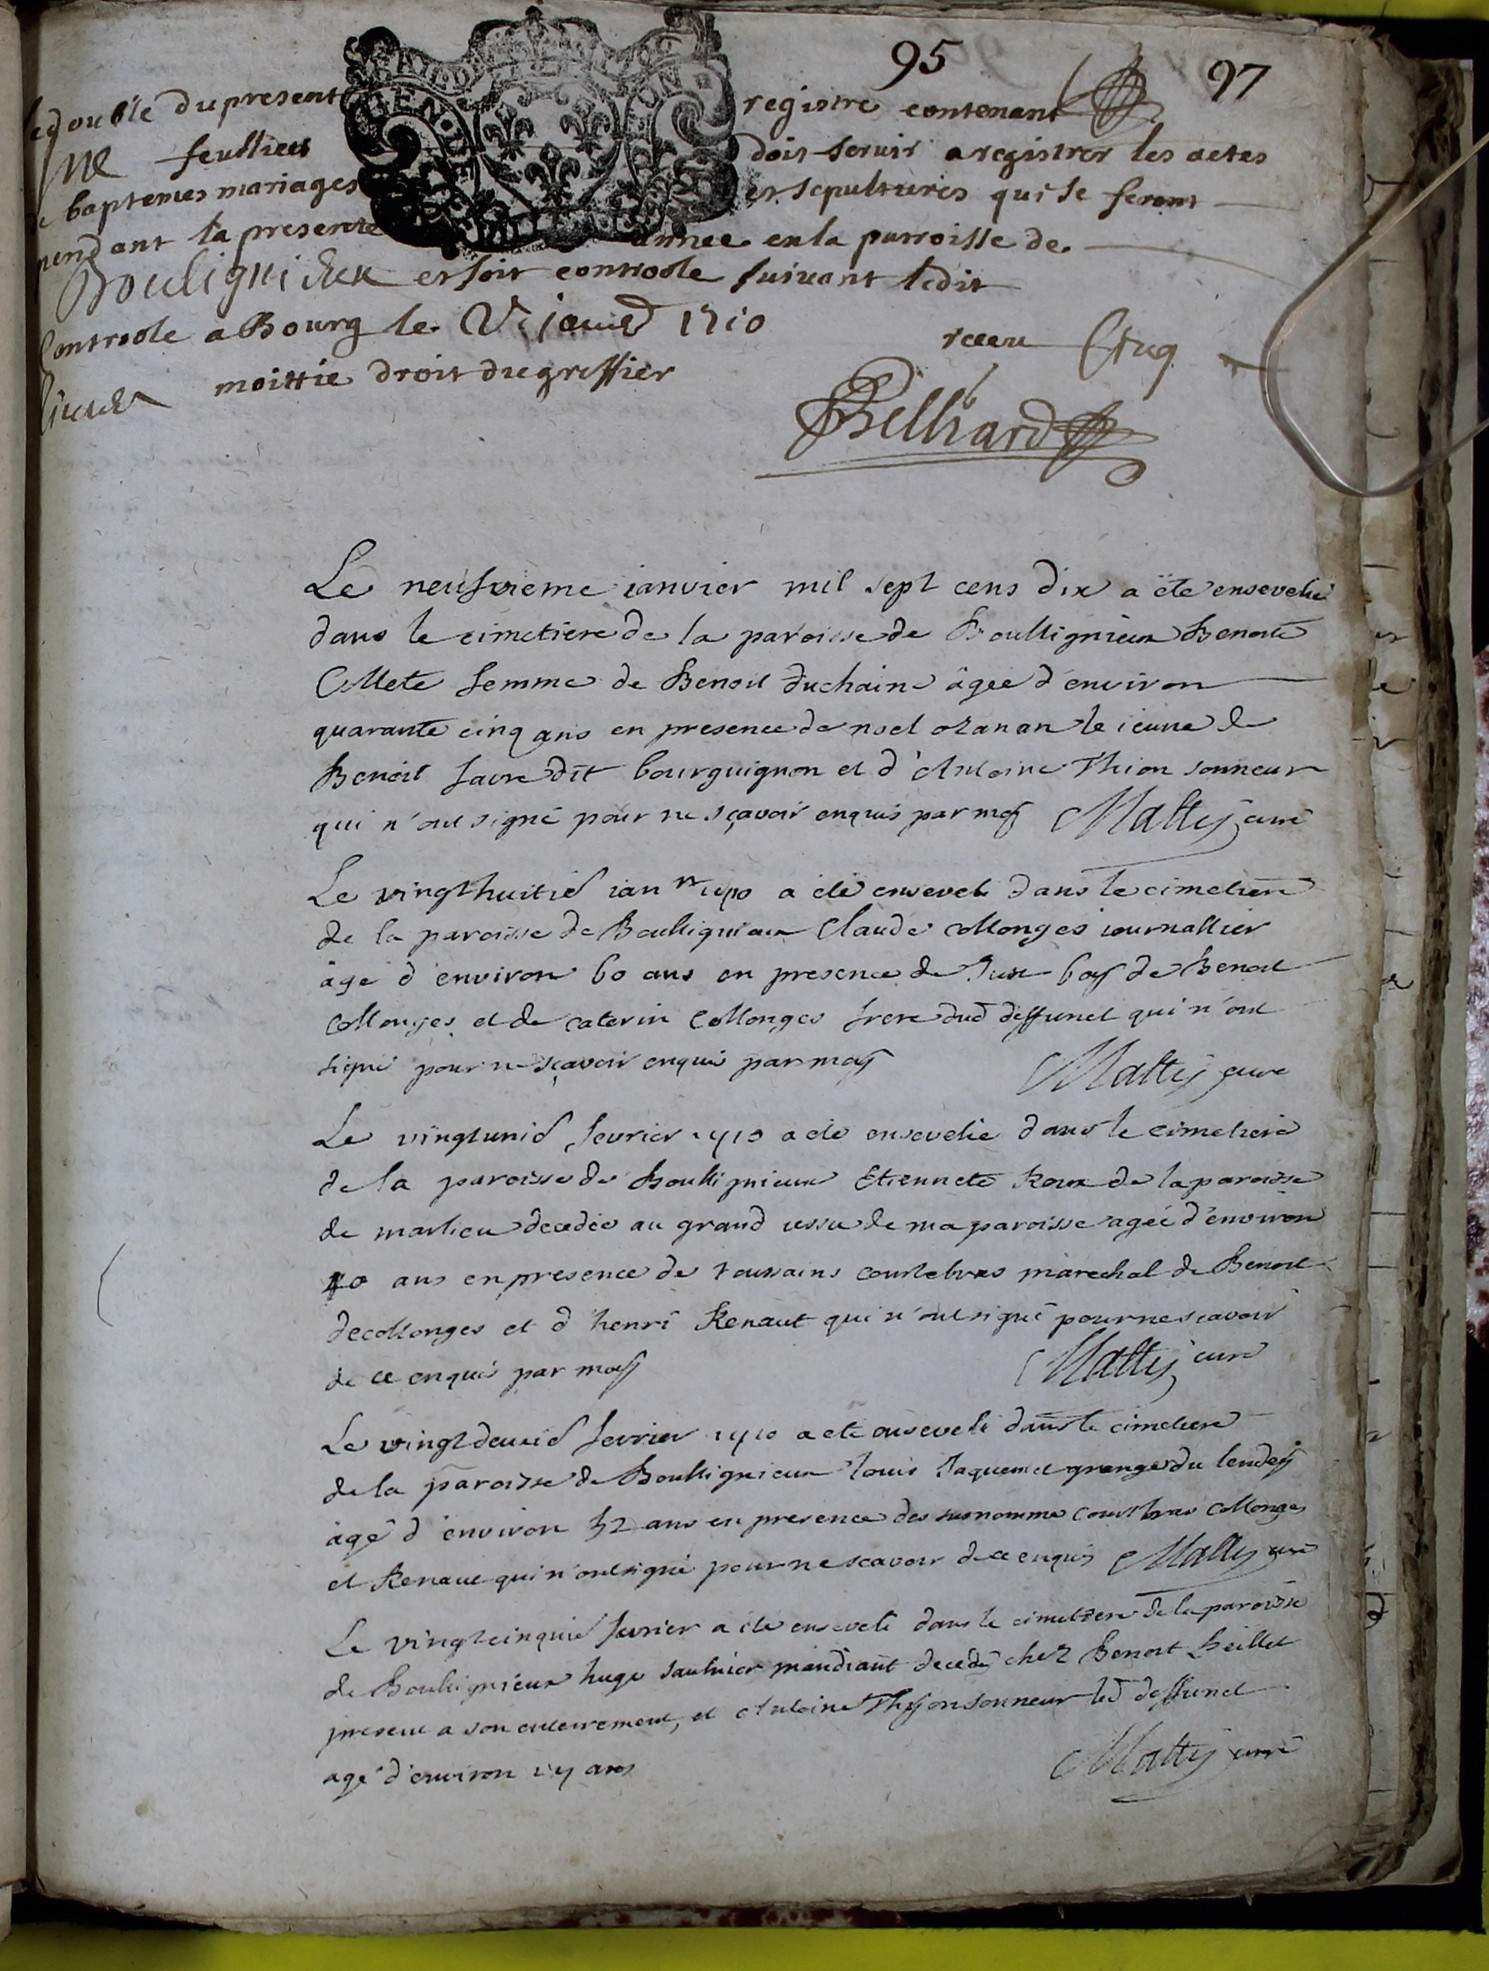 95 97
le double du present registre contenant
feulliets doit servir a registrer les actes
de baptemes mariages et sepultures qui se feront
pendant la presente annee en la parroisse de
Bouligneux et soit controole suivant ledit
Controole a Bourg le janvier 1710
receu
moittie droit du greffier
Belliard
Le neufvieme ianvier mil sept cens dix a ete ensevelie
dans le cimetiere de la paroisse de Boullignieux Benoite
Collete femme de Benoit duchaine âgée d'environ
quarante cinq ans en presence de noel ozanan le ieune de
Benoit favre dit bourguignon et d'Antoine Thion sonneur
qui n'ont signé pour ne sçavoir enquis par moy Mattiy curé
Le vingthuitie ianvr 1710 a été enseveli dans le cimetiere
de la paroisse de Boullignieux Claude Collonges iournallier
âgé d'environ 60 ans en presence de de Benoit
Collonges et de Caterin Collonges frere dud deffunct qui n'ont
signé pour ne sçavoir enquis par moy Mattiy curé
Le vingtunie fevrier 1710 a eté ensevelie dans le cimetiere
de la paroisse de Boullignieux Etiennete Roux de la paroisse
de marlieu decedée au grand de ma paroisse agée d'environ
40 ans en presence de toussains courtebras marechal de Benoit
decollonges et d'henri Renaut qui n'ont signé pour ne scavoir
de ce enquis par moy Mattiy curé
Le vingtdeuxie fevrier 1710 a eté enseveli dans le cimetiere
de la paroisse de Boullignieux louis Jaquemet granger du
âgé d'environ 52 ans en presence des susnomme courtbras Collonges
et Renaut qui n'ont signé pour ne scavoir de ce enquis Mattiy curé
Le vingtcinquie fevrier a été enseveli dans le cimetiere de la paroisse
de Boullignieux hugo saulnier mandiant decedé chez Benoit
present a son enterrement, et Antoine Thyon sonneur led deffunct
agé d'environ ans Mattiy curé